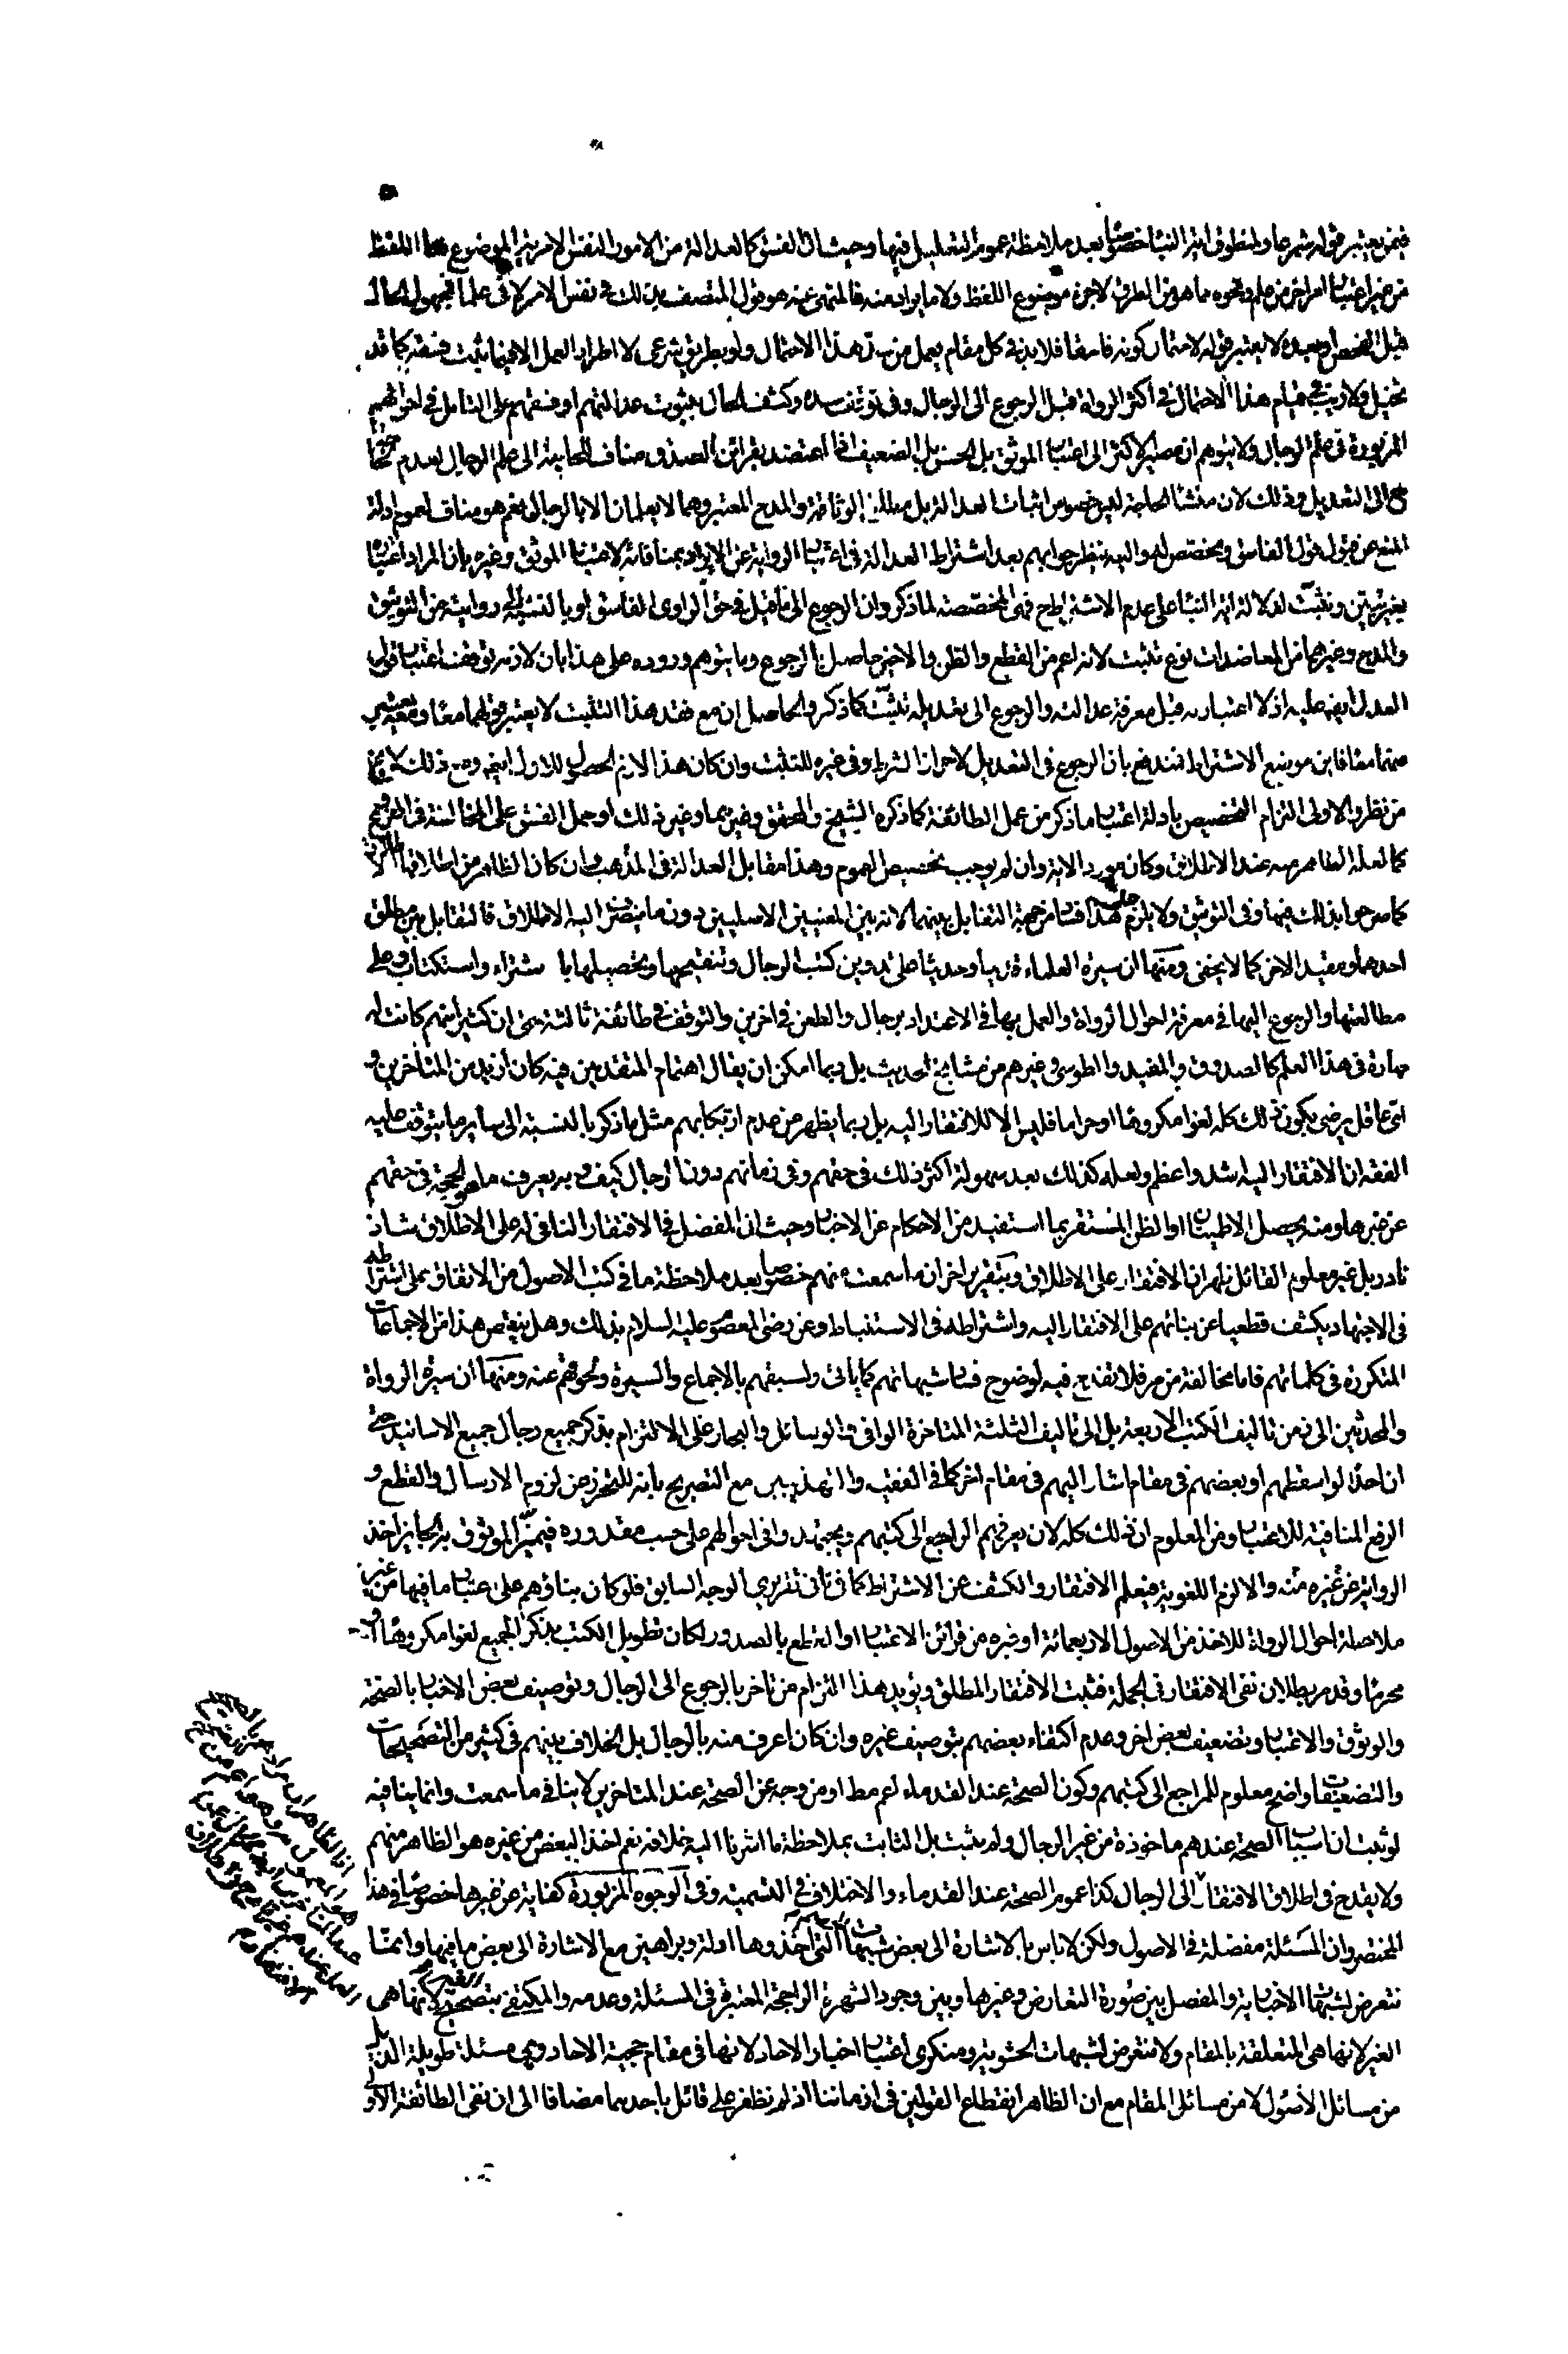 فيمن يعتبر قوله شرعا ولمنطوق اية النبأ خصوصا بعد ملاحظة عموم التعليل فيها وحيث ان الفسق كالعدالة من الامور النفس الامرية الموضوع لها اللفظ
من غير اعتبار امر اخر من علم ونحوه مما هو من الطرق لا جزء موضوع اللفظ ولا ما يراد منه فالمنهى عنه هو قول المتصف بذلك في نفس الامر لا في علمنا فمجهول الحال
قبل الفحص او بعده لا يعتبر قوله لاحتمال كونه فاسقا فلا بد في كل مقام يعمل من نفى هذا الاحتمال ولو بطريق شرعى لا اطراد العمل الا فيما يثبت فسقه كما قد
تخيل ولا ريب في قيام هذا الاحتمال في اكثر الرواة قبل الرجوع الى الرجال وفى توقف سده وكشف الحال بثبوت عدالتهم او فسقهم على التأمل في احوالهم
المزبورة في علم الرجال ولا يتوهم ان مصير الاكثر الى اعتبار الموثق بل الحسن بل الضعيف اذا اعتضد بقرائن الصدق مناف للحاجة الى علم الرجال لعدم
الى التعديل وذلك لان منشأ الحاجة ليس خصوص اثبات العدالة بل مطلق الوثاقة والمدح المعتبر وهما لا يعلمان الا بالرجال نعم هو مناف لعموم ادلة
المنع عن قبول قول الفاسق ومخصص لها واليه ينظر جوابهم بعد اشتراط العدالة في اعتبار الرواية عن الايراد بمنافاته لاعتبار الموثق وغيره بان المراد اعتبار
بغير تبين وتثبت لدلالة اية النبأ على عدم الاشتراط ح فهى المخصصة لما ذكر وان الرجوع الى ما قيل في حق الراوى الفاسق او بالنسبة الى روايته من التوثيق
والمدح وغيرهما من المعاضدات نوع تثبت لانه اعم من القطع والظن والاخير حاصل بالرجوع وما يتوهم وروده على هذا بان لازمه توقف اعتبار قول
العدل ايضا عليه اذ لا اعتبار به قبل معرفة عدالته والرجوع الى تعديله تثبت كما ذكر والحاصل ان مع فقد هذا التثبت لا يعتبر قولهما معا ومعه يعتبر
منهما معا فاين موضع الاشتراط فمندفع بان الرجوع في التعديل لاحراز الشرط وفى غيره للتثبت وان كان هذا الازم الحصول للاول ايضا ومع ذلك لا يخ
من نظر والاولى التزام التخصيص بادلة اعتبار ما ذكر من عمل الطائفة كما ذكره الشيخ والمحقق وغيرهما وغير ذلك او حمل الفسق على المخالفة في الفروع
كما لعله الظاهر منه عند الاطلاق وكان مورد الاية وان لم يوجب تخصيص العموم وهذا مقابل العدالة في المذهب وان كان الظاهر من اطلاقها
كما صرحوا بذلك فيها وفى التوثيق ولا يلزم على هذا فساد من جهة التقابل بينهما لانه بين المعنيين الاصليين دون ما ينصرف اليه الاطلاق فالتقابل بين مطلق
احدهما ومقيد الاخر كما لا يخفى ومنها ان سيرة العلماء قديما وحديثا على تدوين كتب الرجال وتنقيحها وتحصيلها باشتراء واستكتاب وعلى
مطالعتها والرجوع اليها في معرفة احوال الرواة والعمل بها في الاعتداد برجال والطعن في اخرين والتوقف في طائفة ثالثة حتى ان كثيرا منهم كانت له
مهارة في هذا العلم كالصدوق والمفيد والطوسى وغيرهم من مشايخ الحديث بل ربما امكن ان يقال اهتمام المتقدمين فيه كان ازيد من المتأخرين و
اى عاقل يرضى بكون ذلك كله لغوا مكروها او حراما فليس الا للافتقار اليه بل ربما يظهر من عدم ارتكابهم مثل ما ذكر بالنسبة الى ساير ما يتوقف عليه
الفقه ان الافتقار اليه اشد واعظم ولعله كذلك بعد سهولة اكثر ذلك في حقهم وفى زمانهم دون الرجال كيف وبه يعرف ما هو الحجة في حقهم
عن غيرها ومنه يحصل الاطمينان او الظن المستقر بما استفيد من الاحكام عن الاخبار وحيث ان المفضل في الافتقار النافى له على الاطلاق شاذ
نادر بل غير معلوم القائل ظهر ان الافتقار على الاطلاق وبتقرير اخر ان ما سمعت منهم خصوصا بعد ملاحظة ما في كتب الاصول من الاتفاق على اشتراطه
في الاجتهاد يكشف قطعيا عن بنائهم على الافتقار اليه واشتراطه في الاستنباط وعن رضى المعصوم عليه السلام بذلك وهل ينقص هذا من الاجماعات
المتكررة في كلماتهم فاما مخالفة من مر فلا تقدح فيه لوضوح فساد شبهاتهم كما يأتى ولسبقهم بالاجماع والسيرة ولحوقهم عنه ومنها ان سيرة الرواة
والمحدثين الى زمن تاليف الكتب الاربعة بل الى تاليف الثلثة المتاخرة الوافى والوسائل والبحار على الالتزام بذكر جميع رجال جميع الاسانيد حتى
ان احدا لو اسقطهم او بعضهم في مقام اشار اليهم في مقام اخر كما في الفقيه والتهذيبين مع التصريح بانه للتحرز عن لزوم الارسال والقطع و
الرفع المنافية للاعتبار ومن المعلوم ان ذلك كله لان يعرفهم الراجع الى كتبهم ويجتهدوا في احوالهم على حسب مقدوره فيميز الموثوق به الجايز اخذ
الرواية عن غيره منه والا لزم اللغوية فيعلم الافتقار والكشف عن الاشتراط كما في ثانى تقريرى الوجه السابق فلو كان بناؤهم على اعتبار ما فيها من غير
ملاحظة احوال الرواة للاخذ من الاصول الاربعمائة او غيره من قرائن الاعتبار او القطع بالصدور لكان تطويل الكتب بذكر الجميع لغوا مكروها او
محرما وقد مر بطلان نفى الافتقار في الجملة فثبت الافتقار المطلق ويؤيد هذا التزام من تاخر بالرجوع الى الرجال وتوصيف بعض الاخبار بالصحة
والوثوق والاعتبار وتضعيف بعض اخر وعدم اكتفاء بعضهم بتوصيف غيره وان كان اعرف منه بالرجال بل الخلاف بينهم في كثير من التصحيحات
والتضعيفات واضح معلوم للمراجع الى كتبهم وكون الصحة عند القدماء اعم مط او من وجه عن الصحة عند المتاخرين لا ينافى ما سمعت وانما ينافيه
لو ثبت ان اسباب الصحة عندهم ماخوذة من غير الرجال ولم يثبت بل الثابت بملاحظة ما اشرنا اليه خلافه نعم اخذ البعض من غيره هو الظاهر منهم
ولا يقدح في اطلاق الافتقار الى الرجال كذا عموم الصحة عند القدماء والاختلاف في التسمية وفى الوجوه المزبورة كفاية عن غيرها خصوصا في هذا
المختصر وان المسئلة مفصلة في الاصول ولكن لا باس بالاشارة الى بعض شبهات التى اخذوها ادلة وبراهين مع الاشارة الى بعض ما فيها وانما
نتعرض لشبهات الاخبارية والمفصل بين صورة التعارض وغيرها وبين وجود الشهرة الراجحة المعتبرة في المسئلة وعدمه والمكتفى بتصحيح الغير لانها هى
الغير لانها هى المتعلقة بالمقام ولا نتعرض لشبهات الحشوية ومنكرى اعتبار اخبار الاحاد لانها في مقام حجية الاحاد وهى مسئلة طويلة الذيل
من مسائل الاصول لا من مسائل المقام مع ان الظاهر انقطاع القولين في ازماننا اذ لم نظفر على قائل باحدهما مضافا الى ان نفى الطائفة الاولى